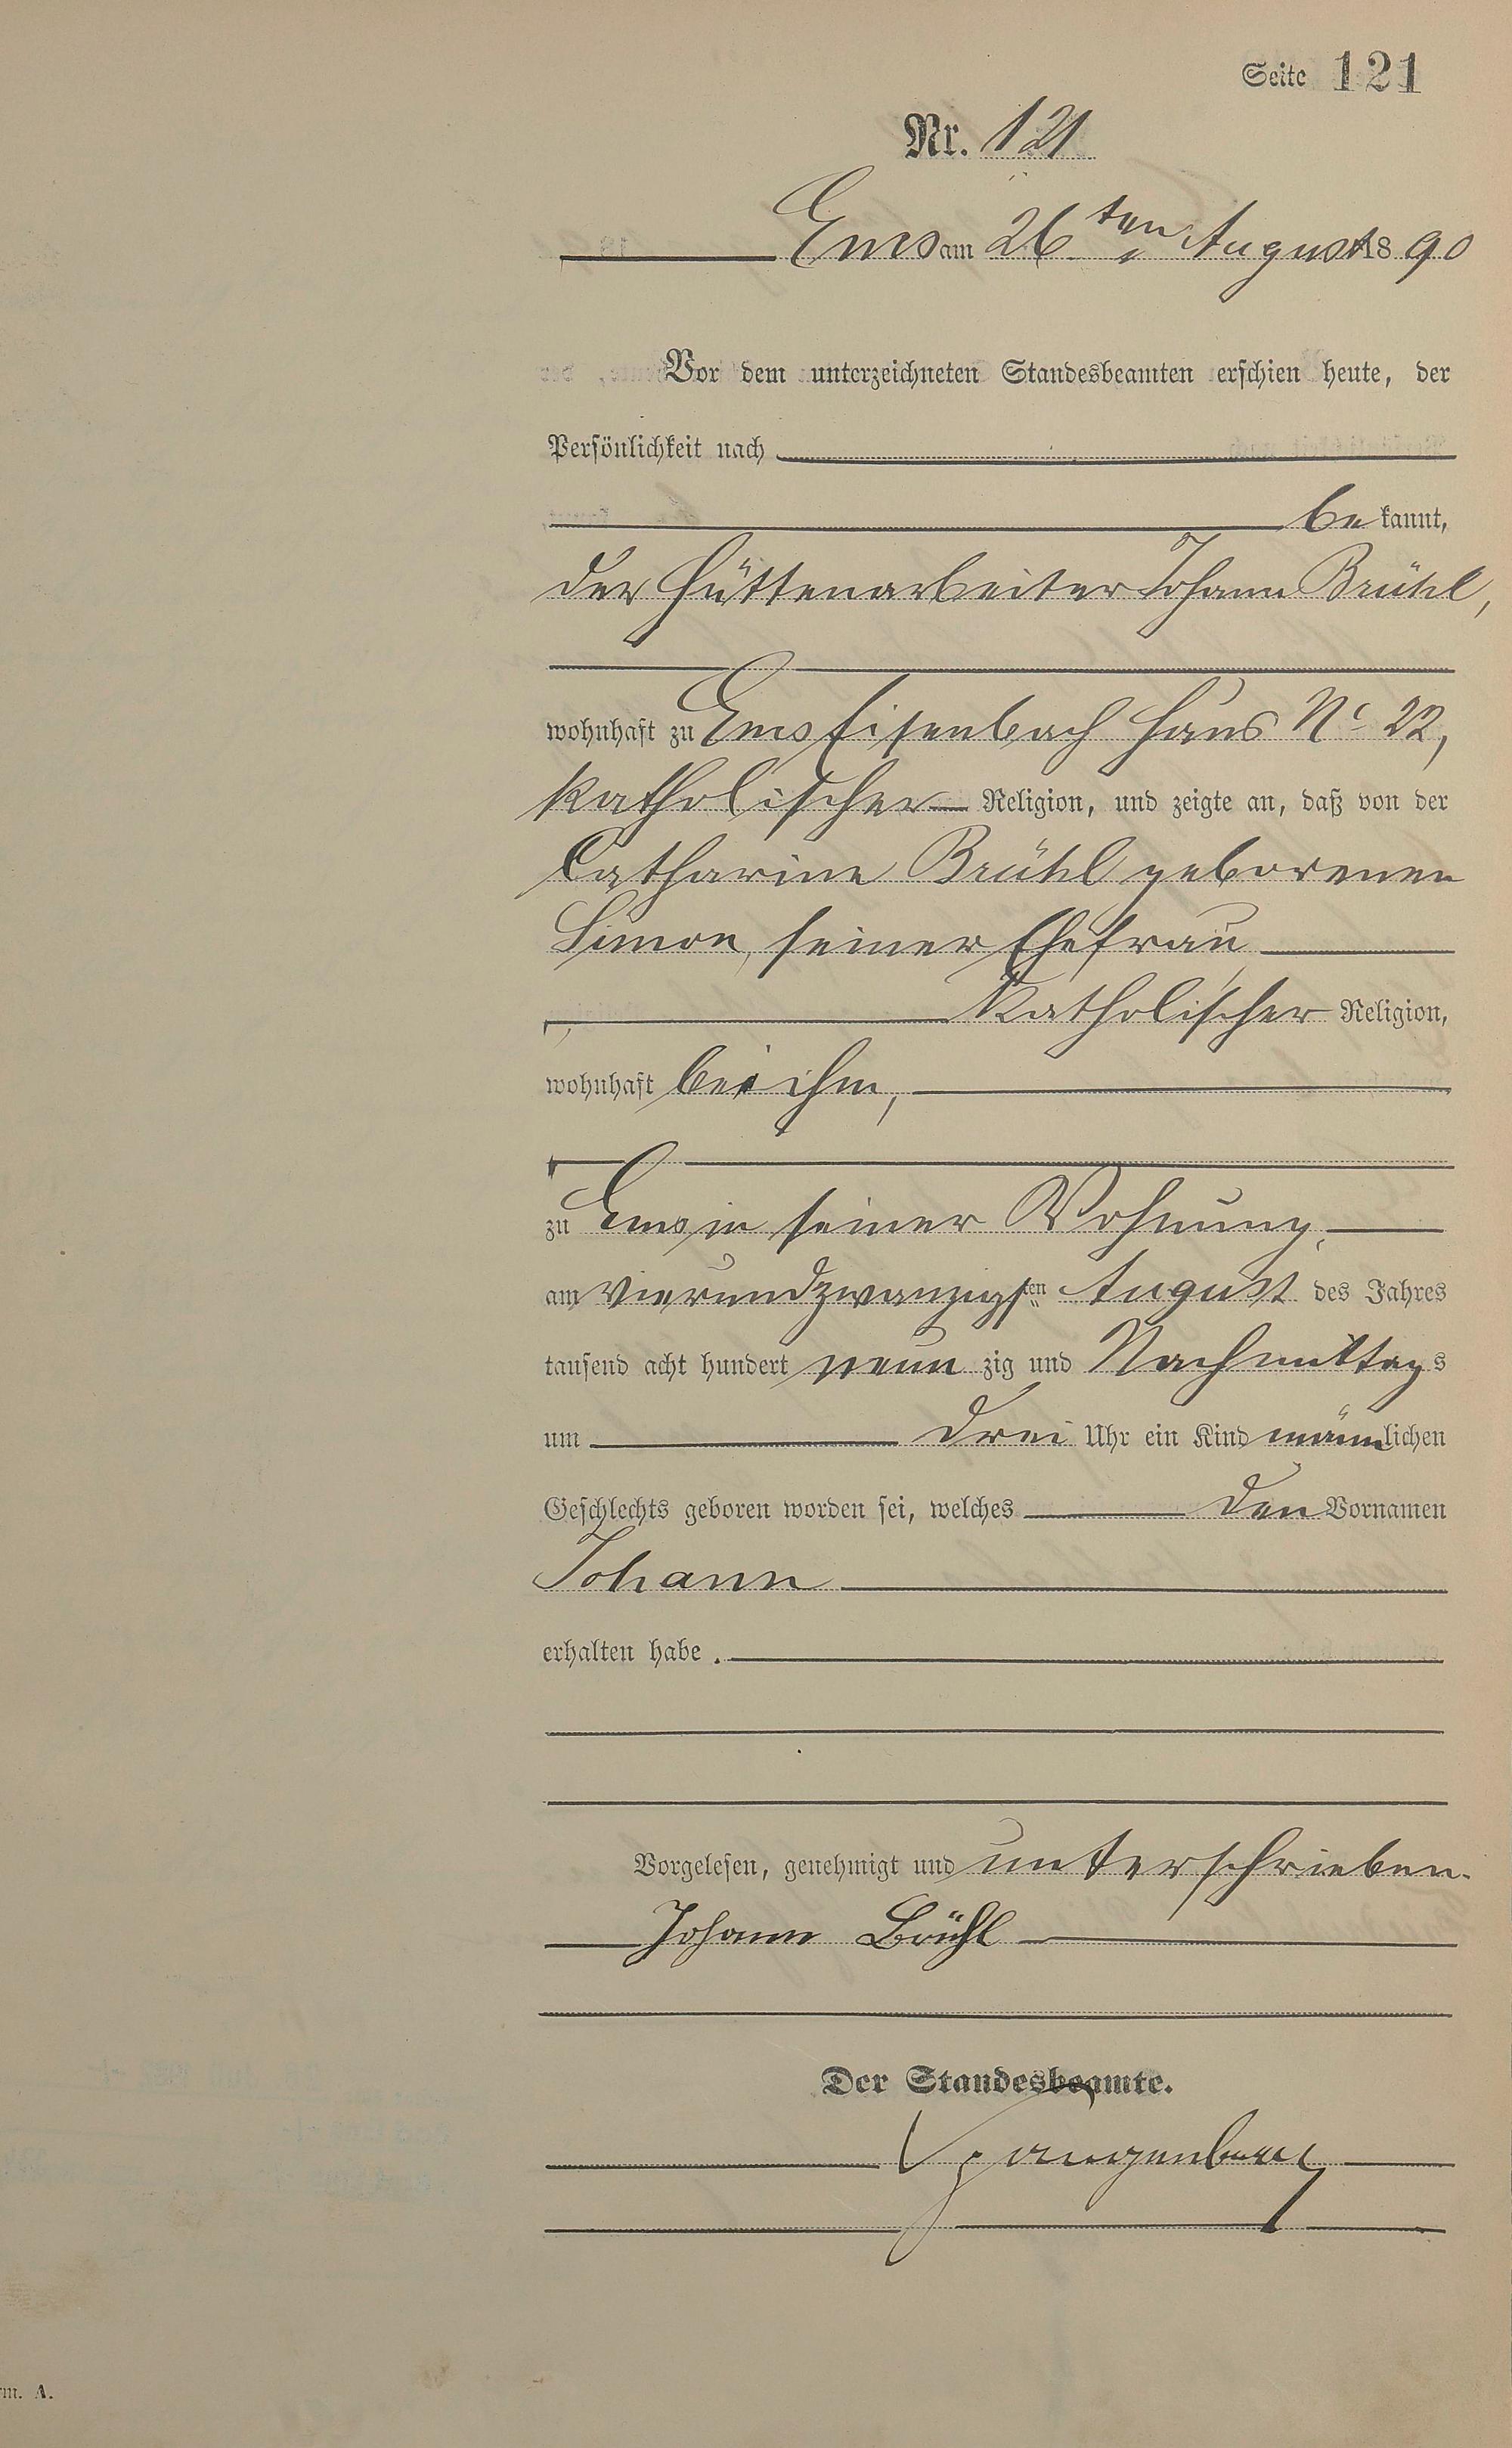 Seite 121
Nr. 121
Ems am 26ten August 1890
Vor dem unterzeichneten Standesbeamten erschien heute, der
Persönlichkeit nach
bekannt,
der Hüttenarbeiter Johann Brühl,
wohnhaft zu Ems Eisenbach Haus No 22,
katholischer Religion, und zeigte an, daß von der
Catharine Brühl geborenen
Simon, seiner Ehefrau
katholischer Religion,
wohnhaft bei ihm,
zu Ems in seiner Wohnung,
am vierundzwanzigsten August des Jahres
tausend acht hundert neunzig und Nachmittags
um drei Uhr ein Kind männlichen
Geschlechts geboren worden sei, welches den Vornamen
Johann
erhalten habe.
Vorgelesen, genehmigt und unterschrieben.
Johann Brühl
Der Standesbeamte.
Spangenberg
rm. A.